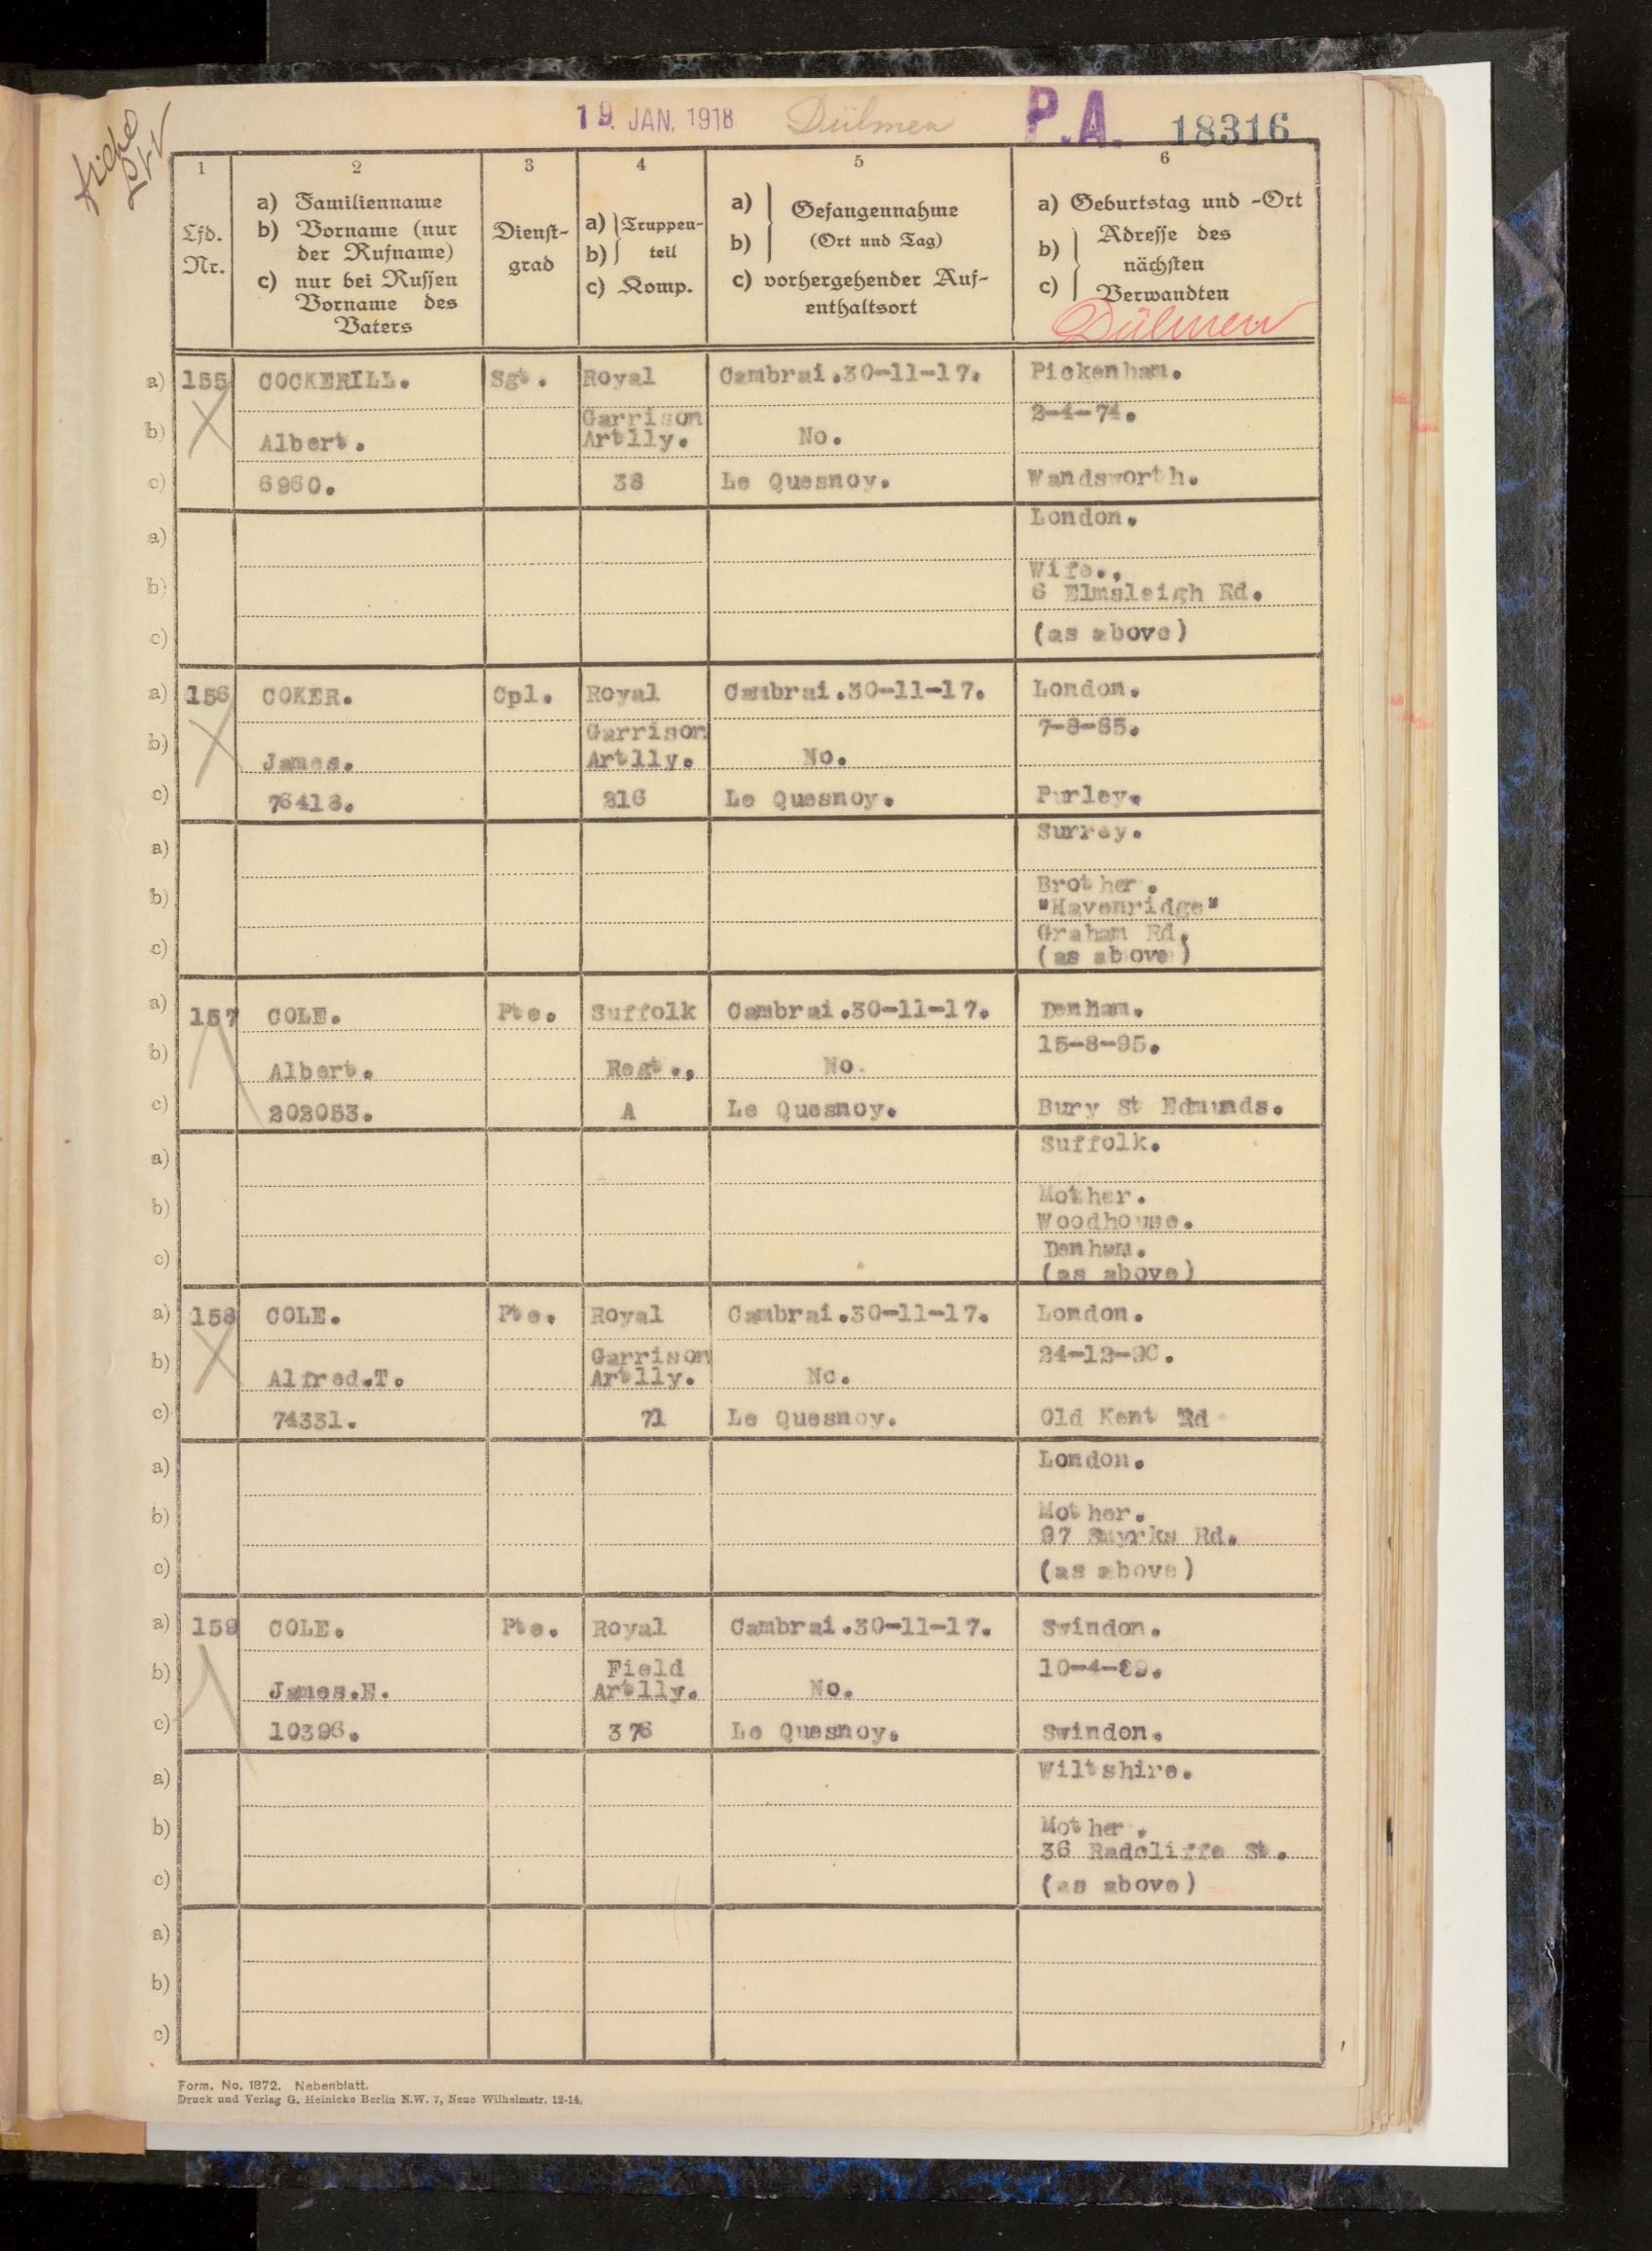 19. JAN. 1918 Dülmen P.A. 18316
1 2 3 4 5 6
Lfd. Nr.
a) Familienname
b) Vorname (nur
der Rufname)
c) nur bei Russen
Vorname des
Vaters
Dienst-
grad
a) Truppen-
b) teil
c) Komp.
a) Gefangennahme
b) (Ort und Tag)
c) vorhergehender Auf-
enthaltsort
a) Geburtstag und -Ort
b) Adresse des
nächsten
c) Verwandten
Dülmen
a) 155 COCKERILL. Sgt. Royal Cambrai.30-11-17. Pickenham.
Garrison 2-4-74.
b) Albert. Artlly. No.
c) 6960. 38 Le Quesnoy. Wandsworth.
a) London.
Wife.,
b) 6 Elmsleigh Rd.
c) (as above)
a) 156 COKER. Cpl. Royal Cambrai.30-11-17. London.
Garrison 7-8-85.
b) James. Artlly. No.
c) 76418. 216 Le Quesnoy. Purley.
a) Surrey.
Brother.
b) "Havenridge"
c) Graham Rd.
(as above)
a) 157 COLE. Pte. Suffolk Cambrai.30-11-17. Denham.
15-8-95.
b) Albert. Regt., No.
c) 202053. A Le Quesnoy. Bury St Edmunds.
a) Suffolk.
Mother.
b) Woodhouse.
c) Denham.
(as above)
a) 158 COLE. Pte. Royal Cambrai.30-11-17. London.
Garrison 24-12-90.
b) Alfred.T. Artlly. No.
c) 74331. 71 Le Quesnoy. Old Kent Rd
a) London.
Mother.
b) 97 Rd.
c) (as above)
a) 159 COLE. Pte. Royal Cambrai.30-11-17. Swindon.
Field 10-4-89.
b) James.E. Artlly. No.
c) 10396. 376 Le Quesnoy. Swindon.
a) Wiltshire.
Mother.
b) 36 Radcliffe St.
c) (as above)
a)
b)
c)
Form. No. 1872. Nebenblatt.
Druck und Verlag G. Heinicke Berlin N.W. 7, Neue Wilhelmstr. 12-14.